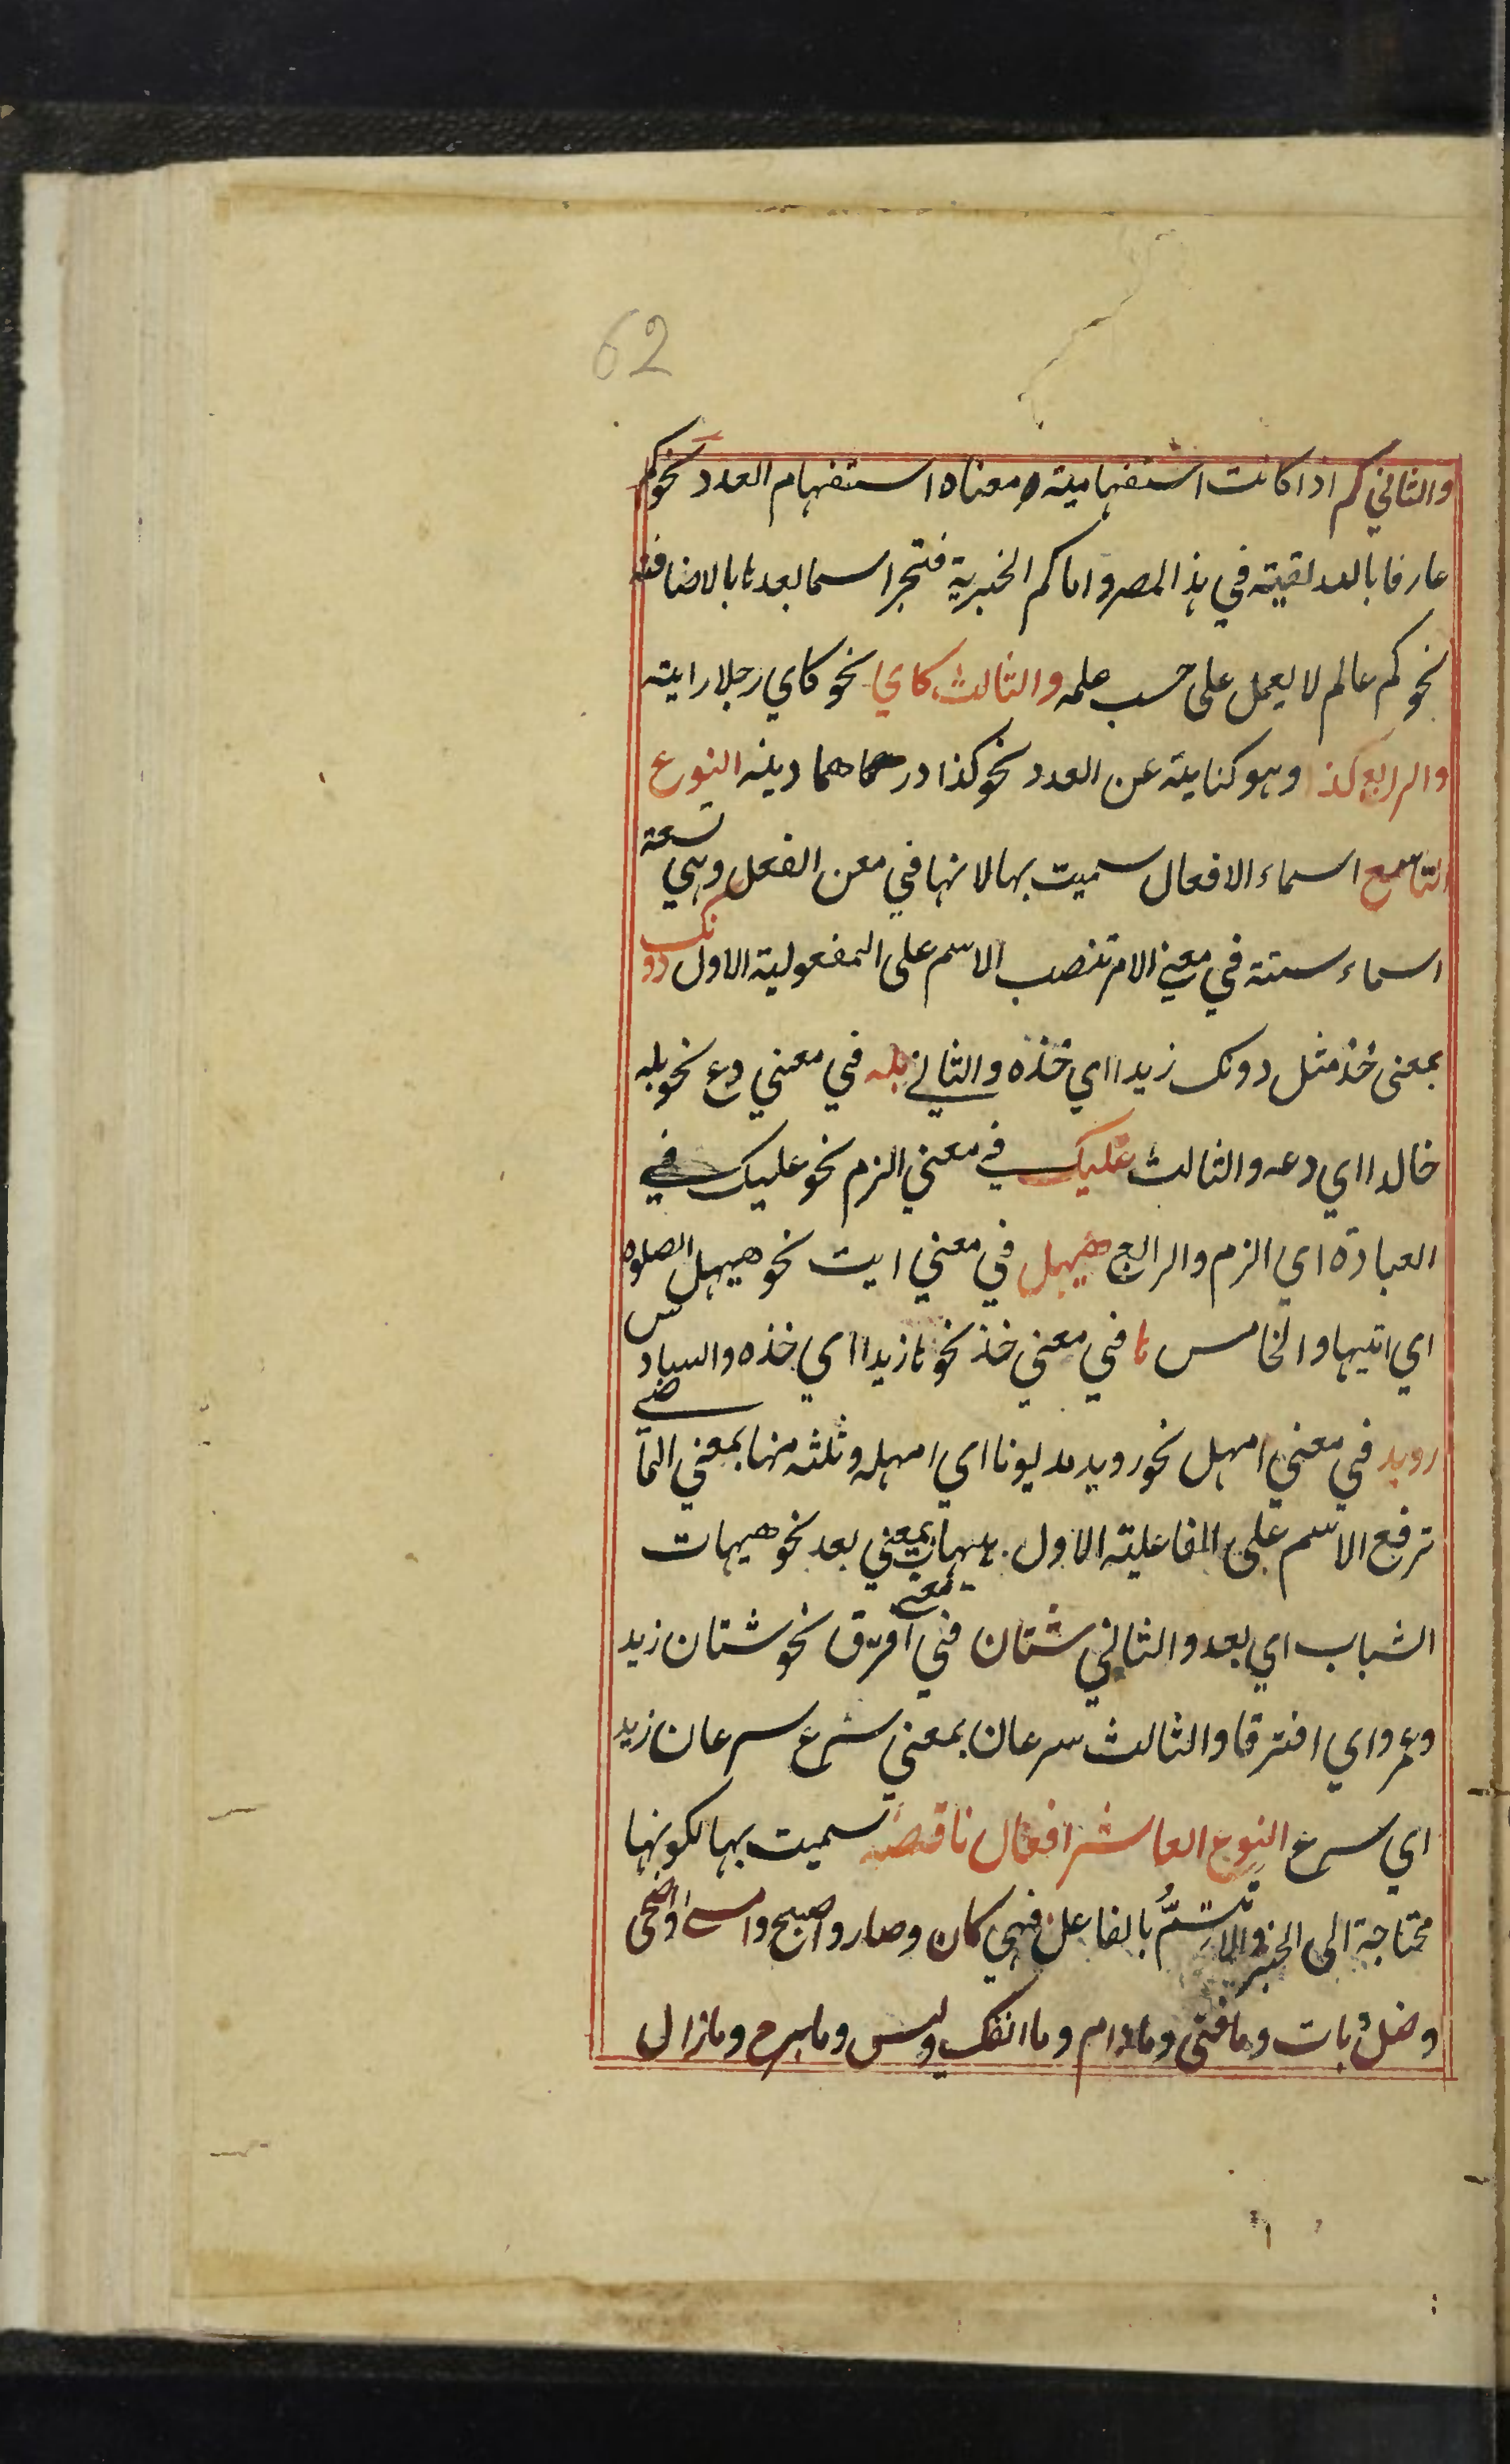 62
والثاني كم اذا كانت استفهامية ومعناه استفهام العدد نحو كم
عارفا بالله لقيته في هذا المصر واما كم الخبرية فتجر اسما بعدها بالاضافة
نحو كم عالم لا يعمل على حسب علمه والثالث كاي نحو كاي رجلا رايته
والرابع كذا وهو كناية عن العدد نحو كذا درهما النوع
التاسع اسماء الافعال سميت بها لانها في معن الفعل وهي تسعة
اسماء ستة في معني الامر تنصب الاسم على المفعولية الاول دونك
بمعنى خذ مثل دونك زيدا اي خذه والثاني بله في معني دع نحو بله
خالدا اي دعه والثالث عليك في معني الزم نحو عليك في
العبادة اي الزم والرابع حيهل في معني ايت نحو حيهل الصلوه
اي ايتيها والخامس ها في معني خذ نحو ها زيدا اي خذه والسادس
رويد في معني امهل نحو رويد مديونا اي امهله وثلثه منها بمعني الماضي
ترفع الاسم على الفاعلية الاول هيهات بمعني بعد نحو هيهات
الشباب اي بعد والثاني شتان في معني افرق نحو شتان زيد
وعمرو اي افترقا والثالث سرعان بمعني سرع سرعان زيد
اي سرع النوع العاشر افعال ناقصه سميت بها لكونها
محتاجة الى الخبر ولا تتم بالفاعل فهي كان وصار واصبح وامسى واضحى
وضل بات وما فتى وما دام وما انفك وليس وما برح وما زال